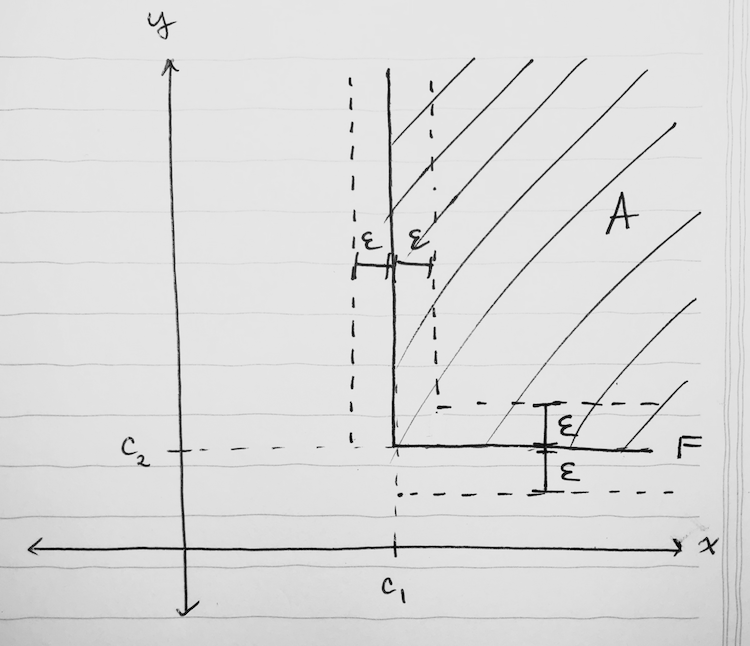 y
A
ε ε
ε
c₂ F
ε
x
c₁